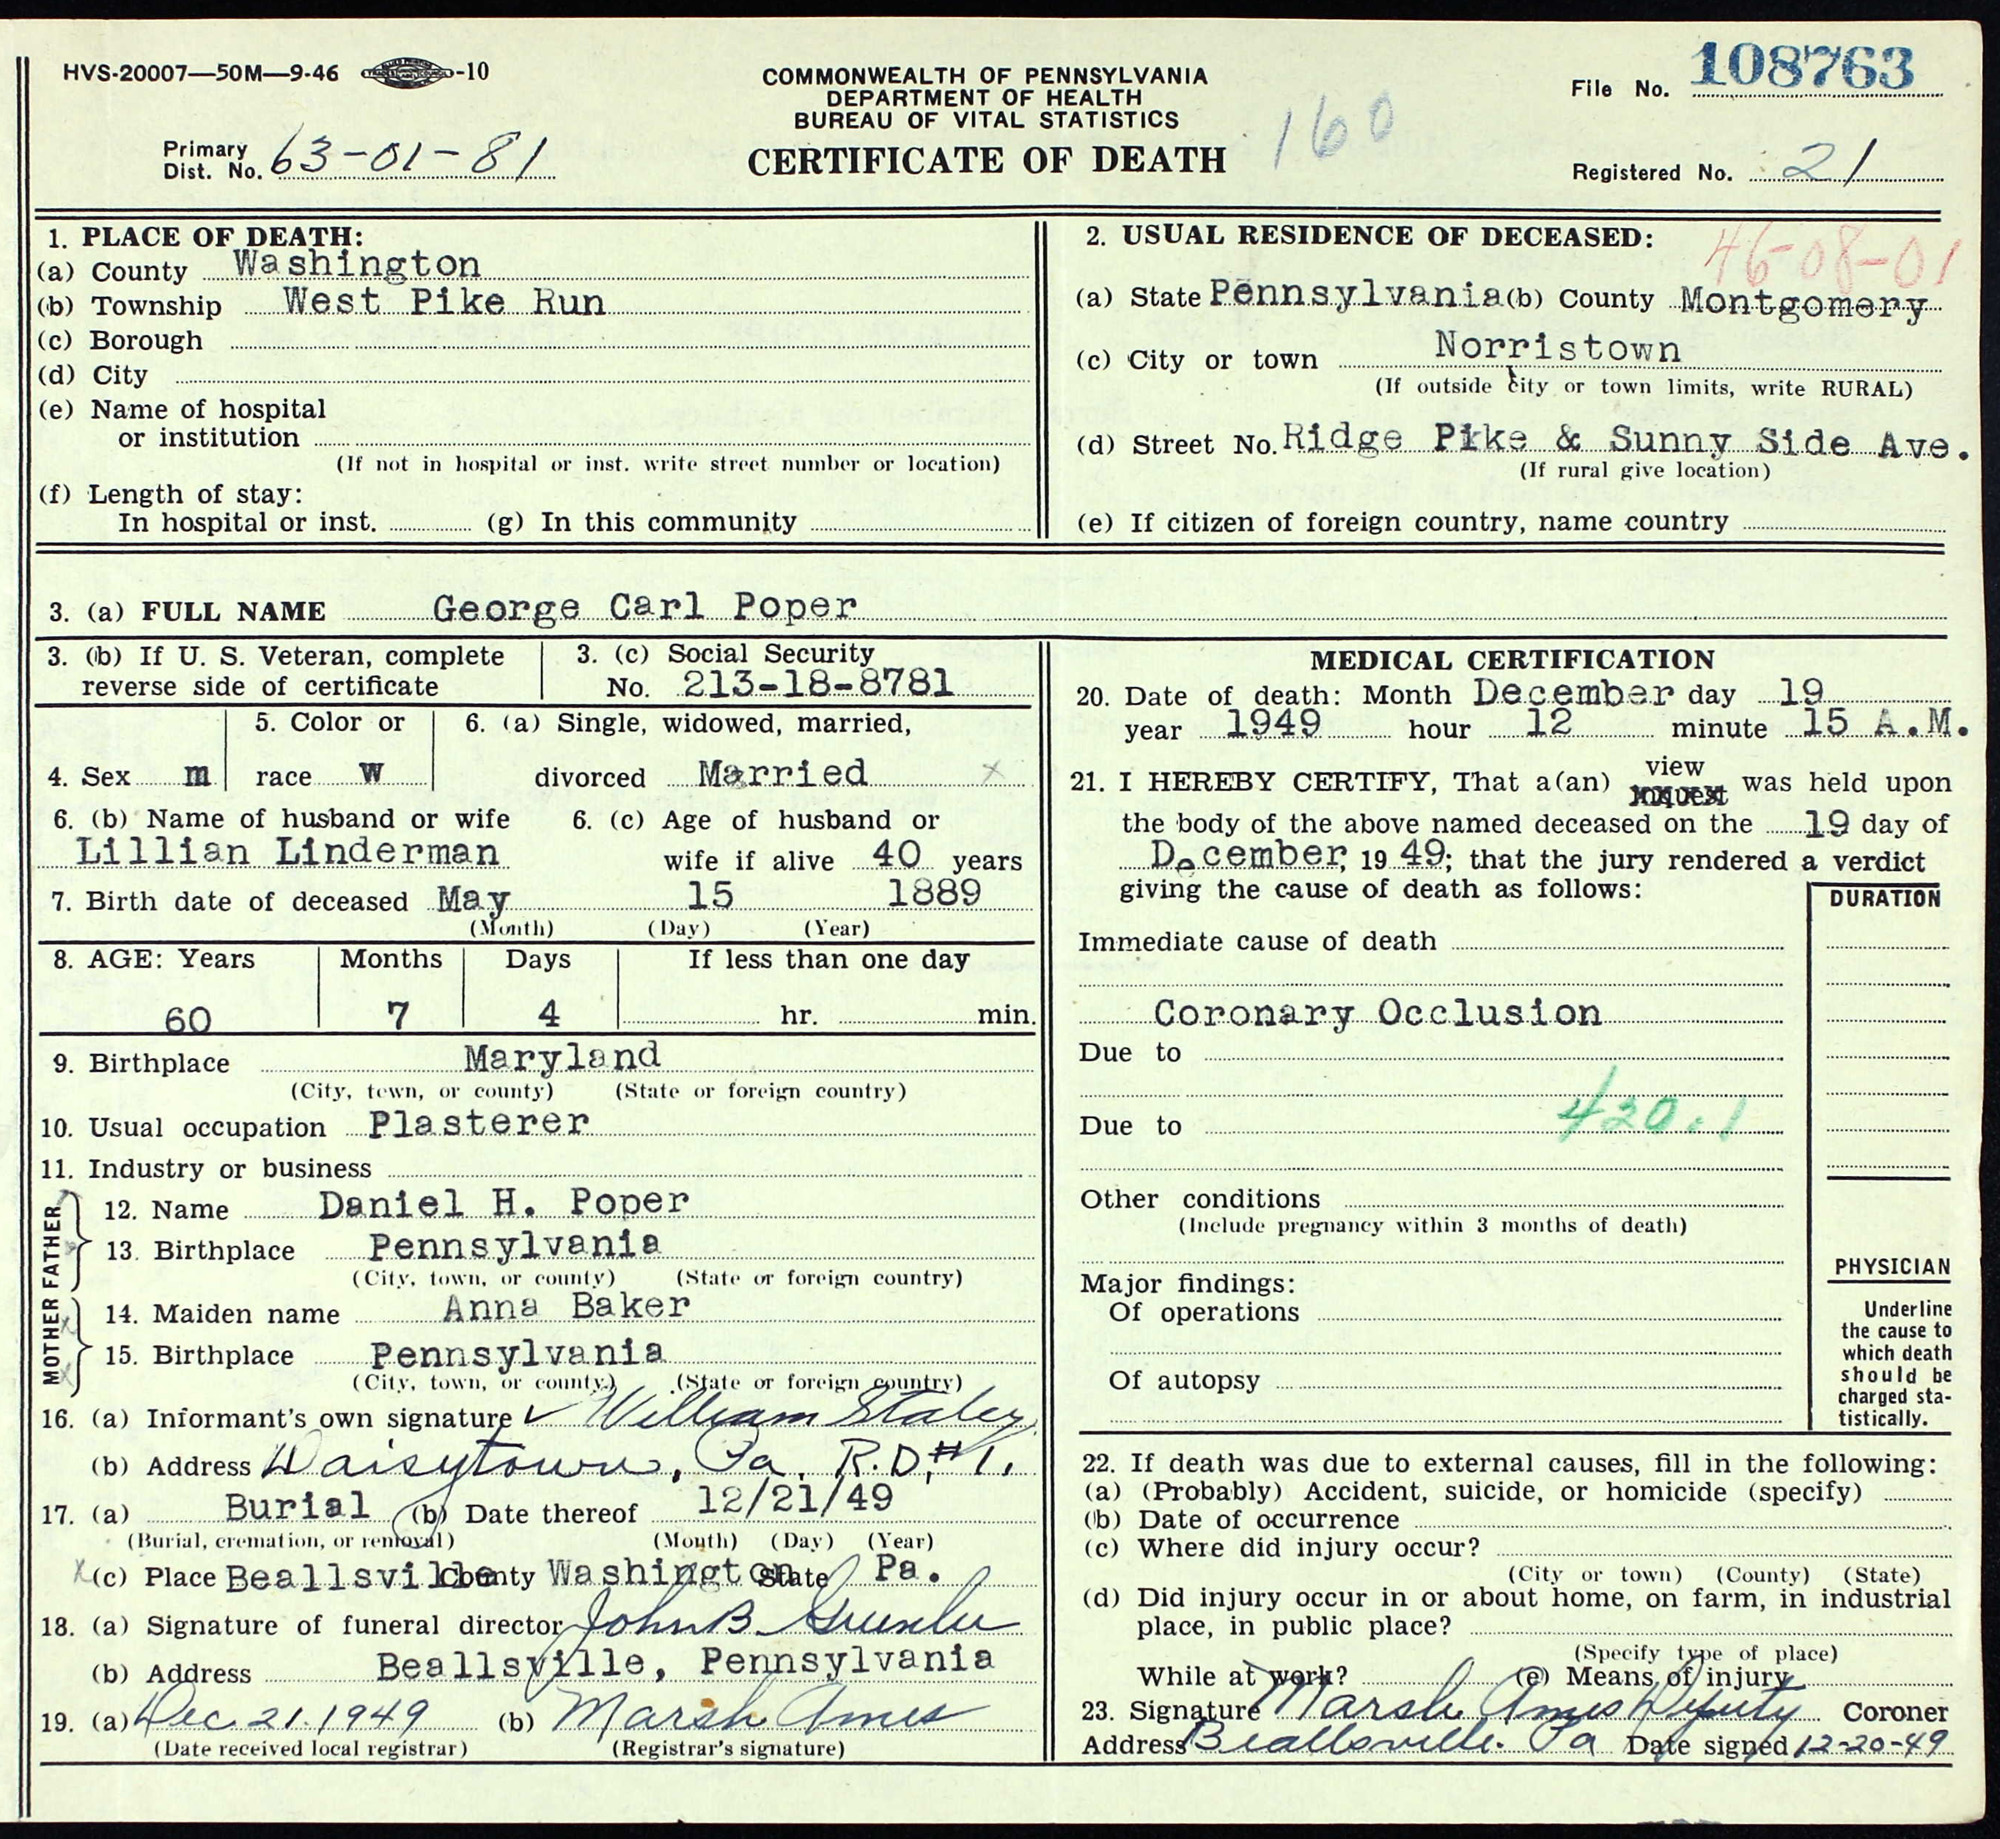 HVS-20007—50M—9-46 -10
COMMONWEALTH OF PENNSYLVANIA
DEPARTMENT OF HEALTH
BUREAU OF VITAL STATISTICS
CERTIFICATE OF DEATH
160
File No. 108763
Primary
Dist. No. 63-01-81
Registered No. 21
1. PLACE OF DEATH:
(a) County Washington
(b) Township West Pike Run
(c) Borough
(d) City
(e) Name of hospital
or institution
(If not in hospital or inst. write street number or location)
(f) Length of stay:
In hospital or inst. (g) In this community
2. USUAL RESIDENCE OF DECEASED: 46-08-01
(a) State Pennsylvania (b) County Montgomery
(c) City or town Norristown
(If outside city or town limits, write RURAL)
(d) Street No. Ridge Pike & Sunny Side Ave.
(If rural give location)
(e) If citizen of foreign country, name country
3. (a) FULL NAME George Carl Poper
3. (b) If U. S. Veteran, complete
reverse side of certificate
3. (c) Social Security
No. 213-18-8781
4. Sex m
5. Color or
race W
6. (a) Single, widowed, married,
divorced Married x
6. (b) Name of husband or wife
Lillian Linderman
6. (c) Age of husband or
wife if alive 40 years
7. Birth date of deceased May 15 1889
(Month) (Day) (Year)
8. AGE: Years Months Days If less than one day
60 7 4 hr. min.
9. Birthplace Maryland
(City, town, or county) (State or foreign country)
10. Usual occupation Plasterer
11. Industry or business
FATHER
12. Name Daniel H. Poper
13. Birthplace Pennsylvania
(City, town, or county) (State or foreign country)
MOTHER
14. Maiden name Anna Baker
15. Birthplace Pennsylvania
(City, town, or county) (State or foreign country)
16. (a) Informant's own signature William Staley
(b) Address Daisytown, Pa. R.D.#1.
17. (a) Burial (b) Date thereof 12/21/49
(Burial, cremation, or removal) (Month) (Day) (Year)
(c) Place Beallsville County Washington State Pa.
18. (a) Signature of funeral director John B.
(b) Address Beallsville, Pennsylvania
19. (a) Dec. 21. 1949 (b) Marsh Ames
(Date received local registrar) (Registrar's signature)
MEDICAL CERTIFICATION
20. Date of death: Month December day 19
year 1949 hour 12 minute 15 A.M.
21. I HEREBY CERTIFY, That a(an) view inquest was held upon
the body of the above named deceased on the 19 day of
December, 19 49; that the jury rendered a verdict
giving the cause of death as follows:
DURATION
Immediate cause of death
Coronary Occlusion
Due to
420.1
Due to
Other conditions
(Include pregnancy within 3 months of death)
Major findings:
Of operations
Of autopsy
PHYSICIAN
Underline
the cause to
which death
should be
charged sta-
tistically.
22. If death was due to external causes, fill in the following:
(a) (Probably) Accident, suicide, or homicide (specify)
(b) Date of occurrence
(c) Where did injury occur?
(City or town) (County) (State)
(d) Did injury occur in or about home, on farm, in industrial
place, in public place?
(Specify type of place)
While at work? (e) Means of injury
23. Signature Marsh Ames Deputy Coroner
Address Beallsville. Pa Date signed 12-20-49